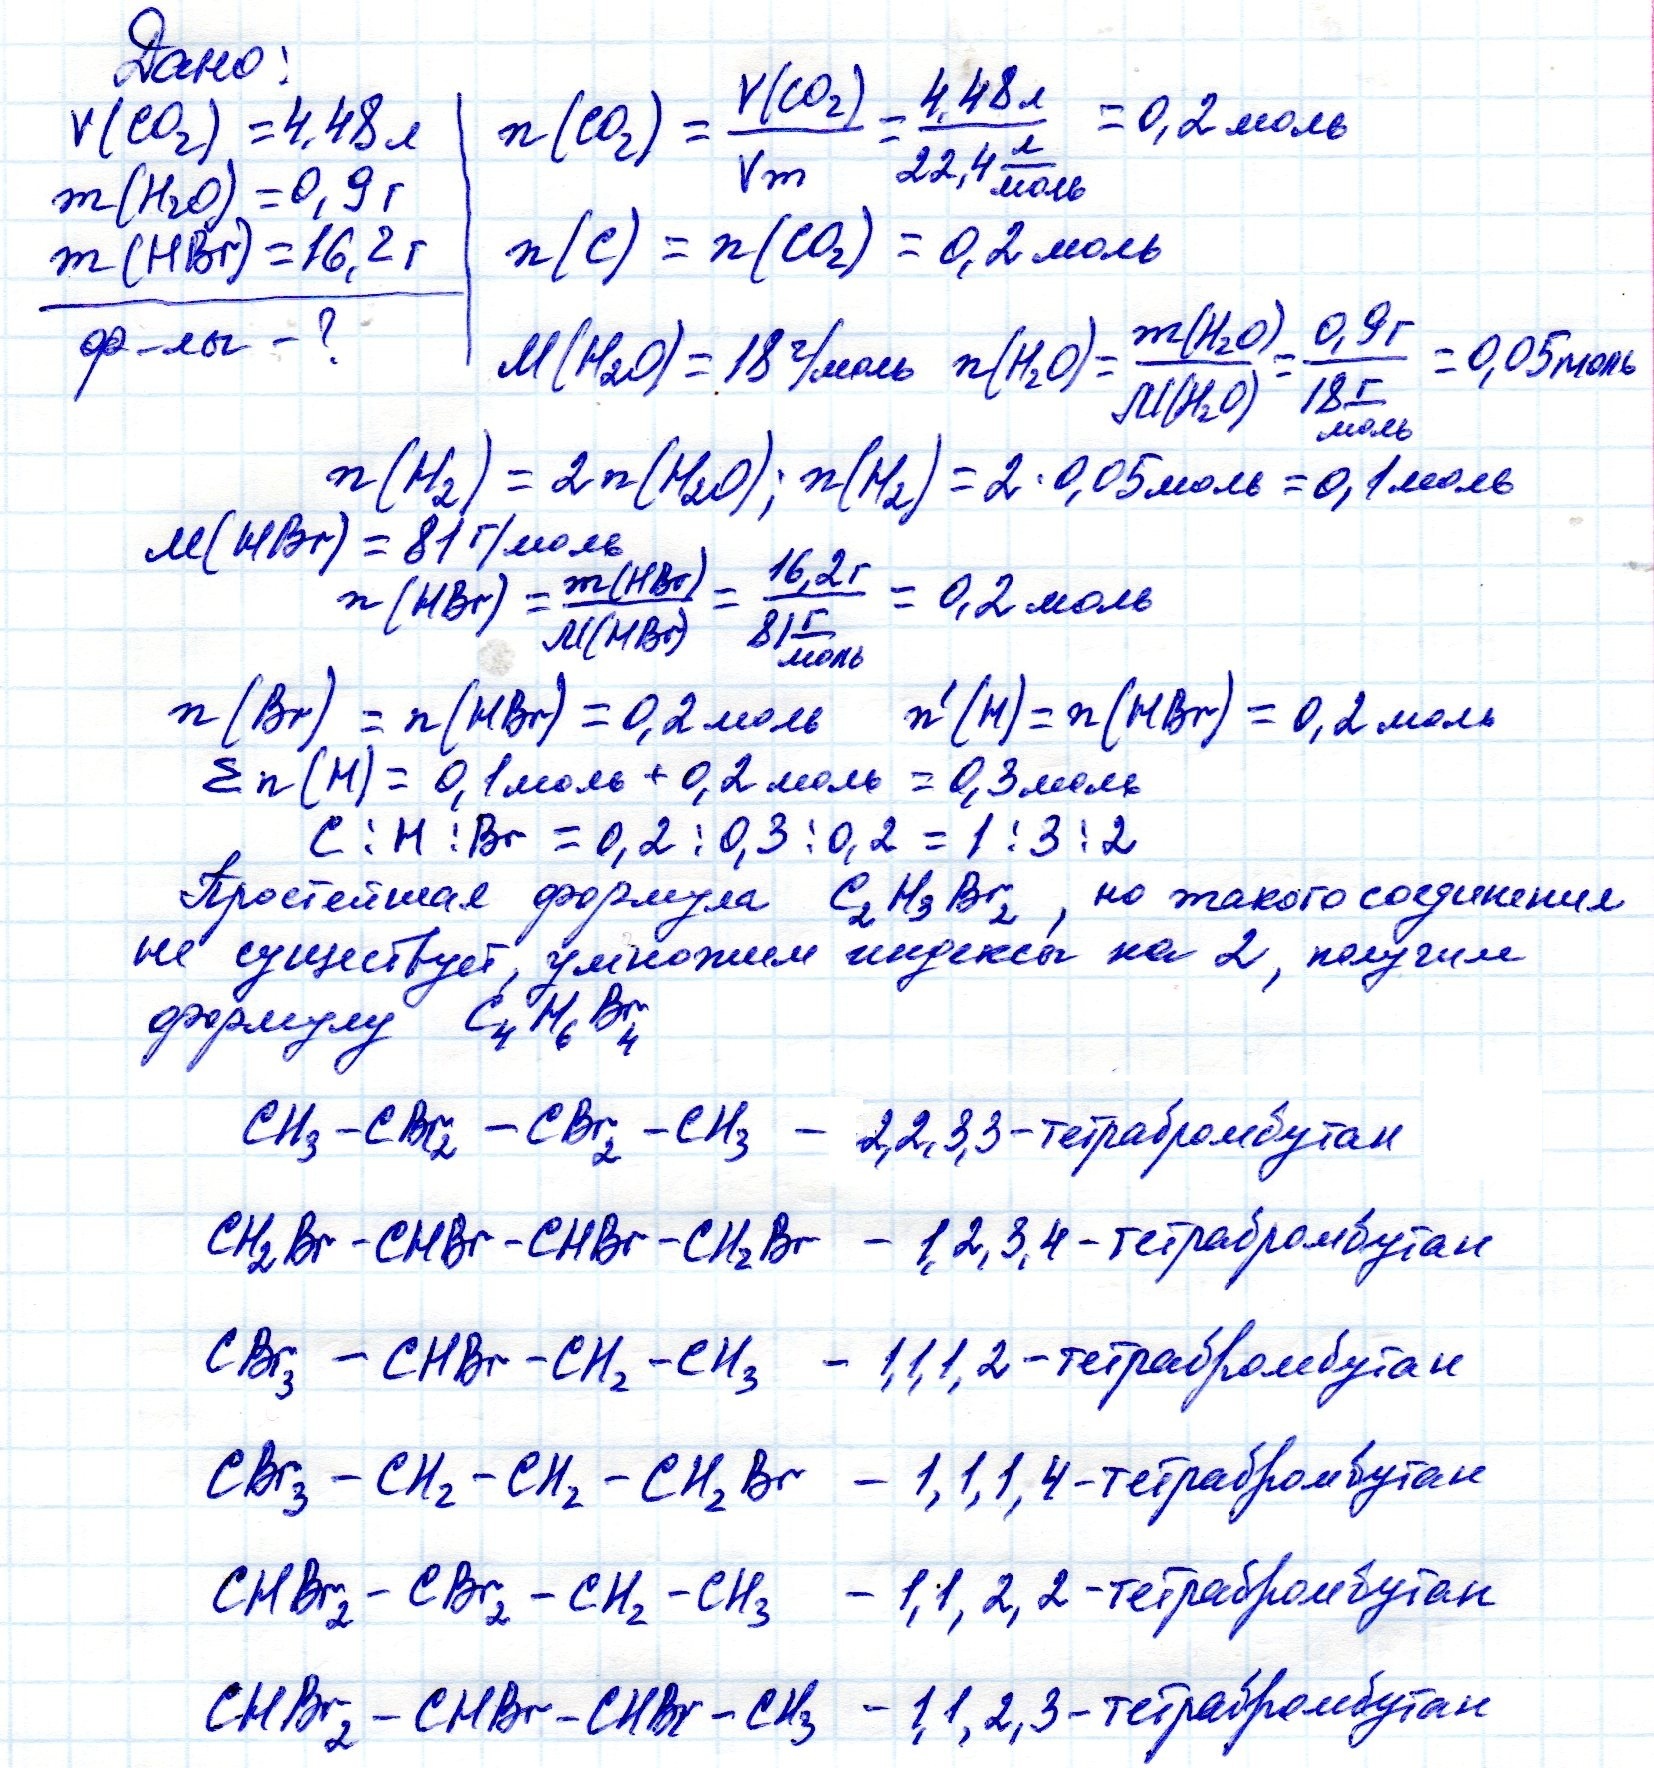 Дано:
V(CO₂) = 4,48 л
m(H₂O) = 0,9 г
m(HBr) = 16,2 г
ф-лы - ?
n(CO₂) = V(CO₂)/Vm = 4,48 л/22,4 л/моль = 0,2 моль
n(C) = n(CO₂) = 0,2 моль
M(H₂O) = 18 г/моль n(H₂O) = m(H₂O)/M(H₂O) = 0,9 г/18 г/моль = 0,05 моль
n(H₂) = 2n(H₂O); n(H₂) = 2·0,05 моль = 0,1 моль
M(HBr) = 81 г/моль
n(HBr) = m(HBr)/M(HBr) = 16,2 г/81 г/моль = 0,2 моль
n(Br) = n(HBr) = 0,2 моль n'(H) = n(HBr) = 0,2 моль
Σn(H) = 0,1 моль + 0,2 моль = 0,3 моль
C : H : Br = 0,2 : 0,3 : 0,2 = 1 : 3 : 2
Простейшая формула C₂H₃Br₂, но такого соединения
не существует, умножим индексы на 2, получим
формулу C₄H₆Br₄
CH₃ - CBr₂ - CBr₂ - CH₃ - 2,2,3,3-тетрабромбутан
CH₂Br - CHBr - CHBr - CH₂Br - 1,2,3,4-тетрабромбутан
CBr₃ - CHBr - CH₂ - CH₃ - 1,1,1,2-тетрабромбутан
CBr₃ - CH₂ - CH₂ - CH₂Br - 1,1,1,4-тетрабромбутан
CHBr₂ - CBr₂ - CH₂ - CH₃ - 1,1,2,2-тетрабромбутан
CHBr₂ - CHBr - CHBr - CH₃ - 1,1,2,3-тетрабромбутан